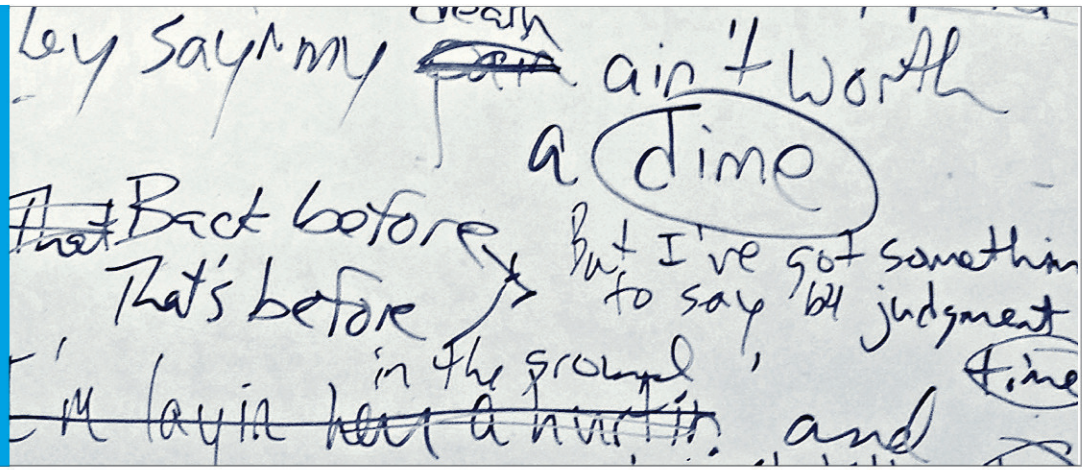 death
say my pain ain't worth
a dime
That Back before
That's before
But I've got somethin
to say b4 judgment
time
in the ground
I'm layin here a hurtin and